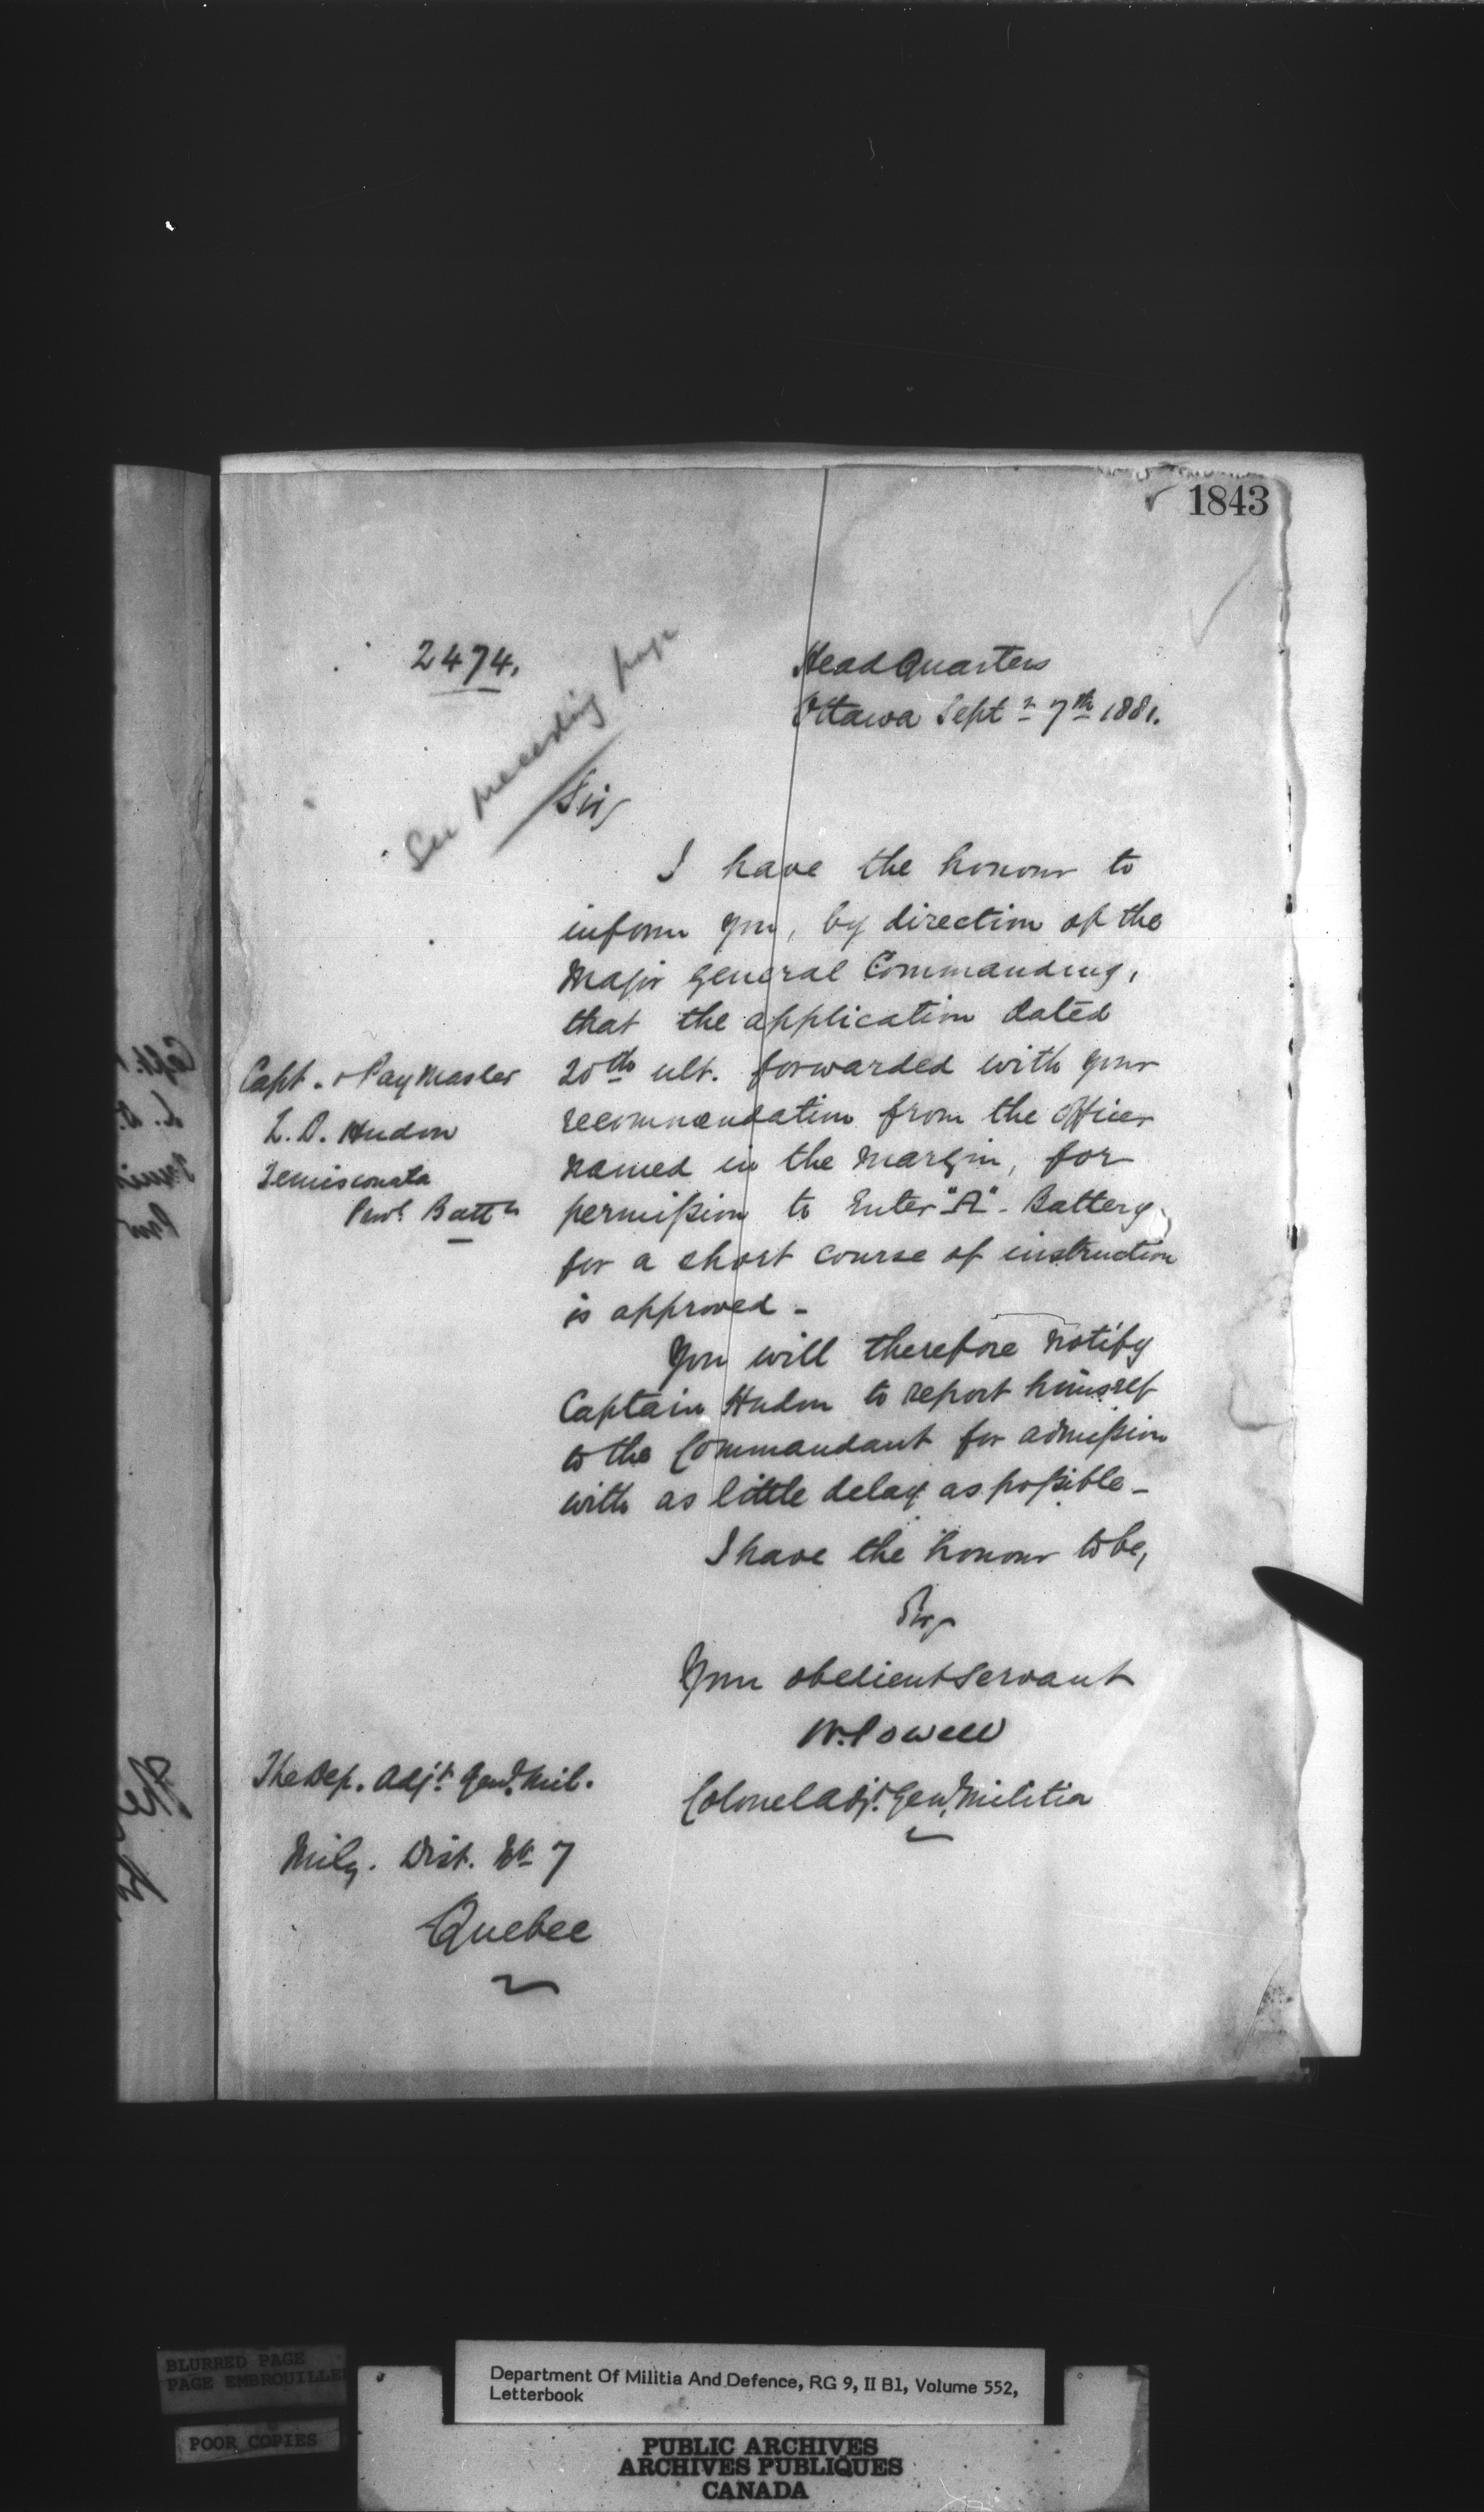 1843
2474.
See preceding page
Head Quarters
Ottawa Sept r 7th 1881.
Sir,
I have the honour to
inform you, by direction of the
Major General Commanding,
that the application dated
20th ult. forwarded with your
recommendation from the Officer
named in the Margin, for
permission to Enter "A" - Battery,
for a short course of instruction
is approved -
Capt. & Pay Master
L. D. Hudon
Temisconata
Provl Battn
You will therefore notify
Captain Hudon to report himself
to the Commandant for admission
with as little delay as possible -
I have the honour to be,
Sir,
Your obedient Servant
W. Powell
Colonel Adjt. Genl. Militia
The Dep. Adjt. Genl. Mil.
Mily. Dist. No 7
Quebec
BLURRED PAGE
PAGE EMBROUILLEE
POOR COPIES
Department Of Militia And Defence, RG 9, II B1, Volume 552,
Letterbook
PUBLIC ARCHIVES
ARCHIVES PUBLIQUES
CANADA